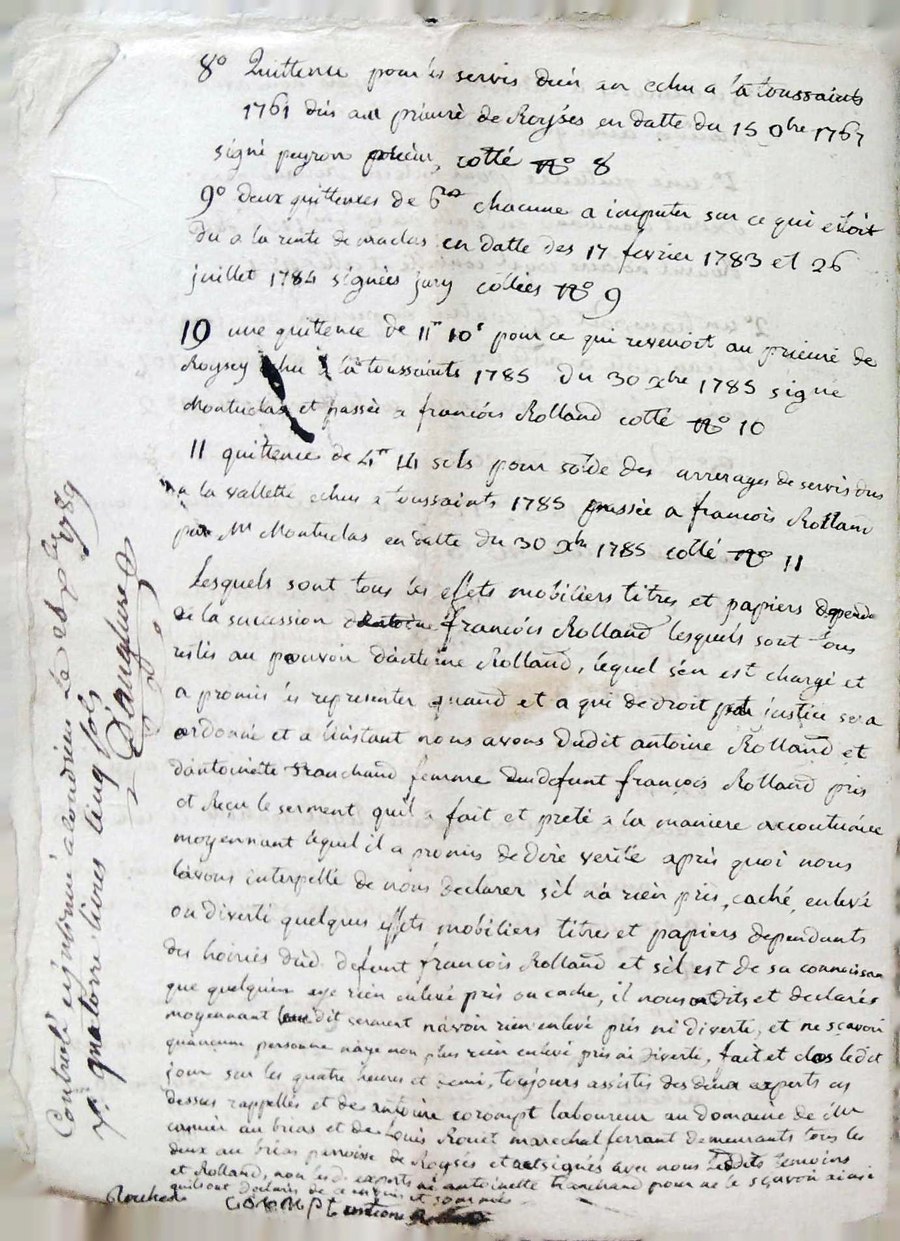 8° Quittence pour les servis d'un an echu a la toussaints
1761 dus au prieuré de Roysés en datte du 15 9bre 1767
signé peyron prieur, cotté N° 8
9° deux quittences de 6# chacune a imputer sur ce qui etoit
du a la rente de maclas en datte des 17 fevrier 1783 et 26
juillet 1784 signées jury cottées N° 9
10 une quittence de 11# 10s pour ce qui revenoit au prieuré de
Roysey echu a la toussaints 1785 du 30 xbre 1785 signé
Montuclas et passée a francois Rolland cotté N° 10
11 quittence de 4# 14 sols pour solde des arrerages de servis dus
a la vallette echu a toussaints 1785 passée a francois Rolland
par Mr Montuclas en datte du 30 xbr 1785 cotté N° 11
Lesquels sont tous les effets mobiliers titres et papiers depend
de la succession francois Rolland lesquels sont tous
restés au pouvoir d'antoine Rolland, lequel s'en est chargé et
a promis les representer quand et a qui de droit par justice sera
ordonné et a l'instant nous avons dudit antoine Rolland et
d'antoinette Tranchand femme dudefunt francois Rolland pris
et Recu le serment qu'il a fait et preté a la maniere accoutumée
moyennant lequel il a promis de dire verité apres quoi nous
l'avons interpellé de nous declarer s'il n'a rien pris, caché, enlevé
ou diverti quelques effets mobiliers titres et papiers dependants
des hoiries dud. defunt francois Rolland et s'il est de sa connoissan
que quelquun aye rien enlevé pris ou caché, il nous a dits et declarés
moyennant leurdit serment n'avoir rien enlevé pris ni diverti, et ne scavoir
qu'aucune personne n'aye non plus rien enlevé pris ni diverti, fait et clos ledit
jour sur les quatre heures et demi, toujours assistés des deux experts cy
dessus rappellés et de antoine corompt laboureur au domaine de
au brias et de Louis Rouet marechal ferrant demeurants tous les
deux au brias parroisse de Roysés et signés avec nous Lesdits temoins
et Rolland, non les d. experts ni antoinette tranchand pour ne le sçavoir ainsi
quils ont declaré de ce enquis et sommés
COROMPT antoine Rolland
Controlé et insinué à Condrieu Le 26 1789
quatorze livres cinq sols